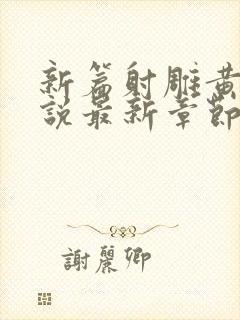 新篇射雕黃
說最新章節
謝麗卿